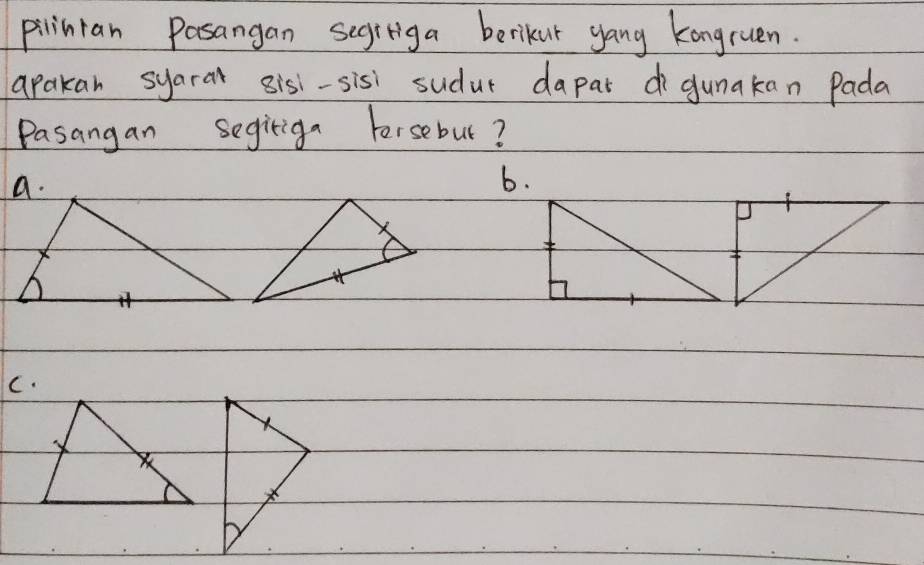 pilihlah Pasangan segitiga berikut yang kongruen.
apakah syarat sisi-sisi sudut dapat di gunakan Pada
Pasangan segitiga tersebut?
a. b.
c.